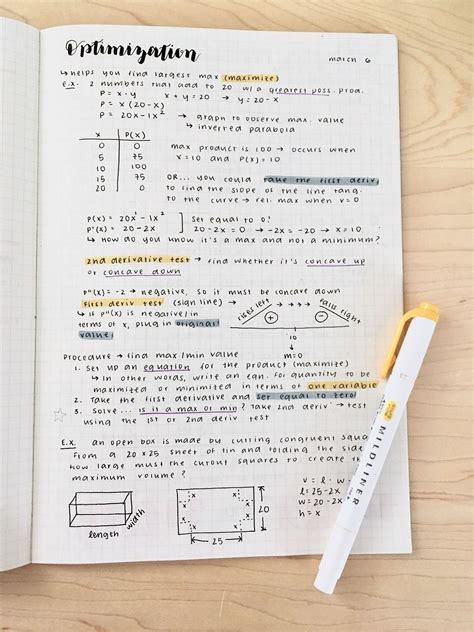 Optimization
march 6
↳ helps you find largest max (maximize)
E.X. 2 numbers that add to 20 w/ a greatest poss. prod.
P = x · y    x + y = 20 → y = 20 - x
P = x (20-x)
P = 20x - 1x² → graph to observe max. value
↳ inverted parabola
x | P(x)
0 | 0
5 | 75
10 | 100
15 | 75
20 | 0
max product is 100 → occurs when
x = 10 and P(x) = 10
OR... you could take the first deriv.
to find the slope of the line tang.
to the curve → rel. max when v = 0
P(x) = 20x - 1x² ] Set equal to 0!
P'(x) = 20 - 2x ] 20 - 2x = 0 → -2x = -20 → x = 10
↳ how do you know it's a max and not a minimum?
2nd derivative test → find whether it's concave up
or concave down
P"(x) = -2 → negative, so it must be concave down
First deriv test (sign line) →
↳ if P"(x) is negative/in
terms of x, plug in original
value
rises left
falls right
+
-
10
m=0
Procedure → find max/min value
1. Set up an equation for the product (maximize)
↳ In other words, write an eqn. for quantity to be
maximized or minimized in terms of one variable
2. Take the first derivative and set equal to zero!
3. Solve... is it a max or min? Take 2nd deriv → test
using the 1st or 2nd derivative test
E.X. an open box is made by cutting congruent squa
from a 20 x 25 sheet of tin and folding the side
how large must the cutout squares to create th
maximum volume?
length
width
x
x
x
x
x
x
x
x
20
25
v = l · w ·
l = 25 - 2x
w = 20 - 2x
h = x
MILDLINER